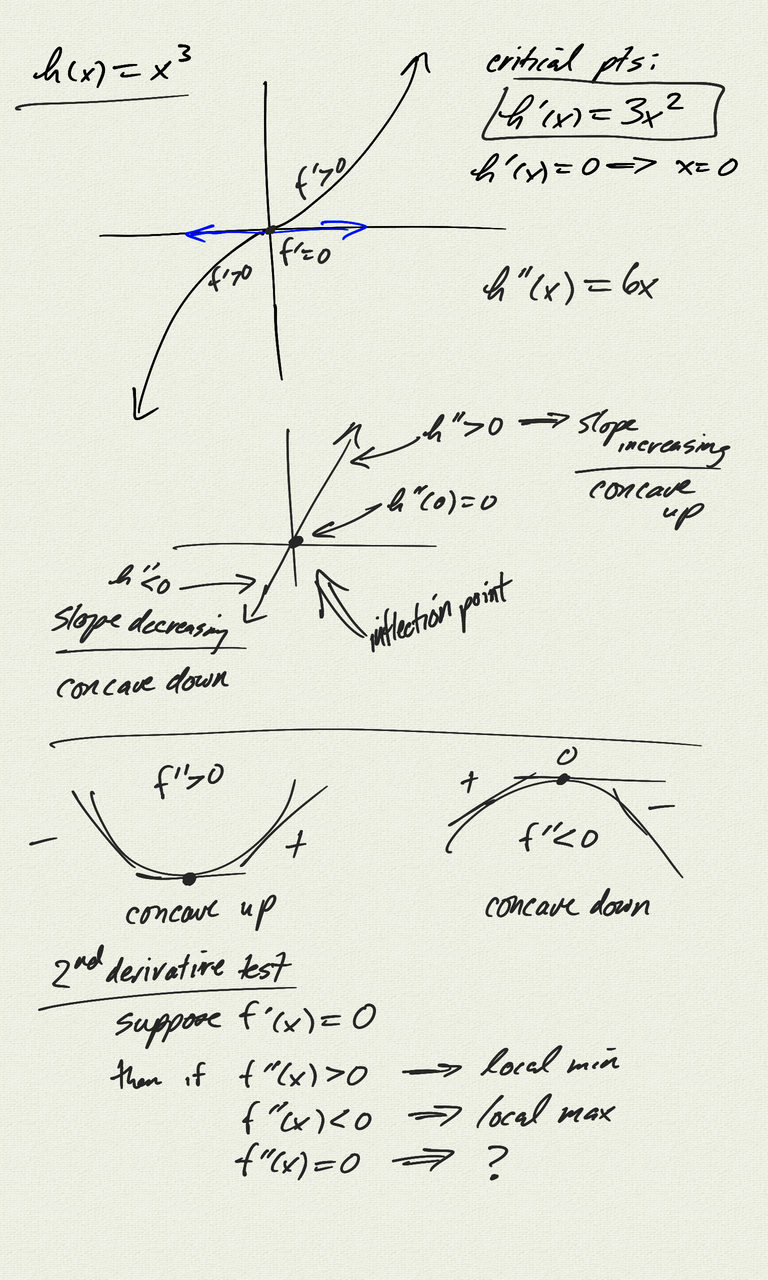 h(x) = x³
critical pts:
h'(x) = 3x²
h'(x) = 0 ⟹ x = 0
f'>0
f'=0
f'>0
h"(x) = 6x
h">0 ⟹ slope
increasing
concave
up
h"(0) = 0
h"<0
slope decreasing
concave down
inflection point
f">0
−
+
concave up
0
+
−
f"<0
concave down
2nd derivative test
suppose f'(x) = 0
then if f"(x) > 0 ⟹ local min
f"(x) < 0 ⟹ local max
f"(x) = 0 ⟹ ?